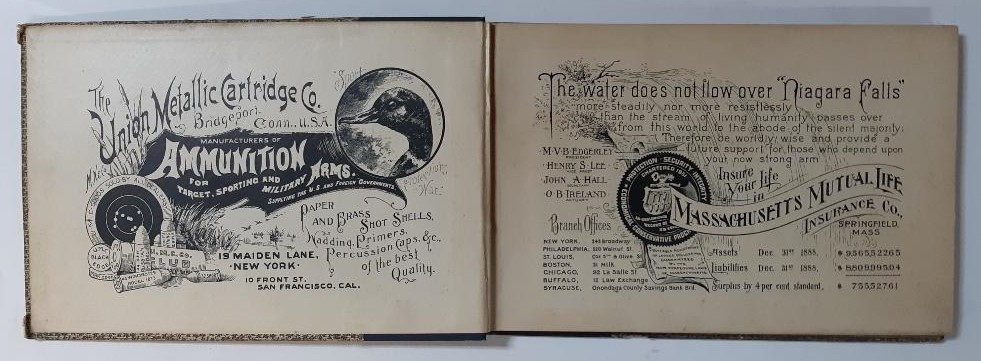 The
Union Metallic Cartridge Co.
Bridgeport,
Conn. U.S.A.
MANUFACTURERS OF
AMMUNITION
FOR
TARGET, SPORTING AND
MILITARY ARMS.
SUPPLYING THE U.S. AND FOREIGN GOVERNMENTS.
PAPER
AND BRASS
SHOT SHELLS,
Wadding, Primers,
Percussion Caps, &c.,
of the best
Quality.
19 MAIDEN LANE,
NEW YORK.
10 FRONT ST.
SAN FRANCISCO, CAL.
The water does not flow over "Niagara Falls"
more steadily nor more resistlessly
than the stream of living humanity passes over
from this world to the abode of the silent majority.
Therefore be worldly wise and provide a
future support for those who depend upon
your now strong arm
M.V.B. EDGERLEY
PRESIDENT
HENRY S. LEE
VICE PREST
JOHN A. HALL
SECRETARY
O.B. IRELAND
ACTUARY
PROTECTION SECURITY INTEGRITY
CHARTERED 1851
Insure
Your Life
in
MASSACHUSETTS MUTUAL LIFE
INSURANCE CO.,
SPRINGFIELD,
MASS
Branch Offices
NEW YORK. 243 Broadway
PHILADELPHIA, 320 Walnut St
ST. LOUIS, Cor 5th & Olive St
BOSTON, 31 Milk
CHICAGO, 92 La Salle St
BUFFALO, 12 Law Exchange
SYRACUSE, Onondaga County Savings Bank Bld
Assets Dec. 31st 1888, $ 936552265
Liabilities Dec. 31st 1888, $ 860999504
Surplus by 4 per cent. standard, $ 75552761